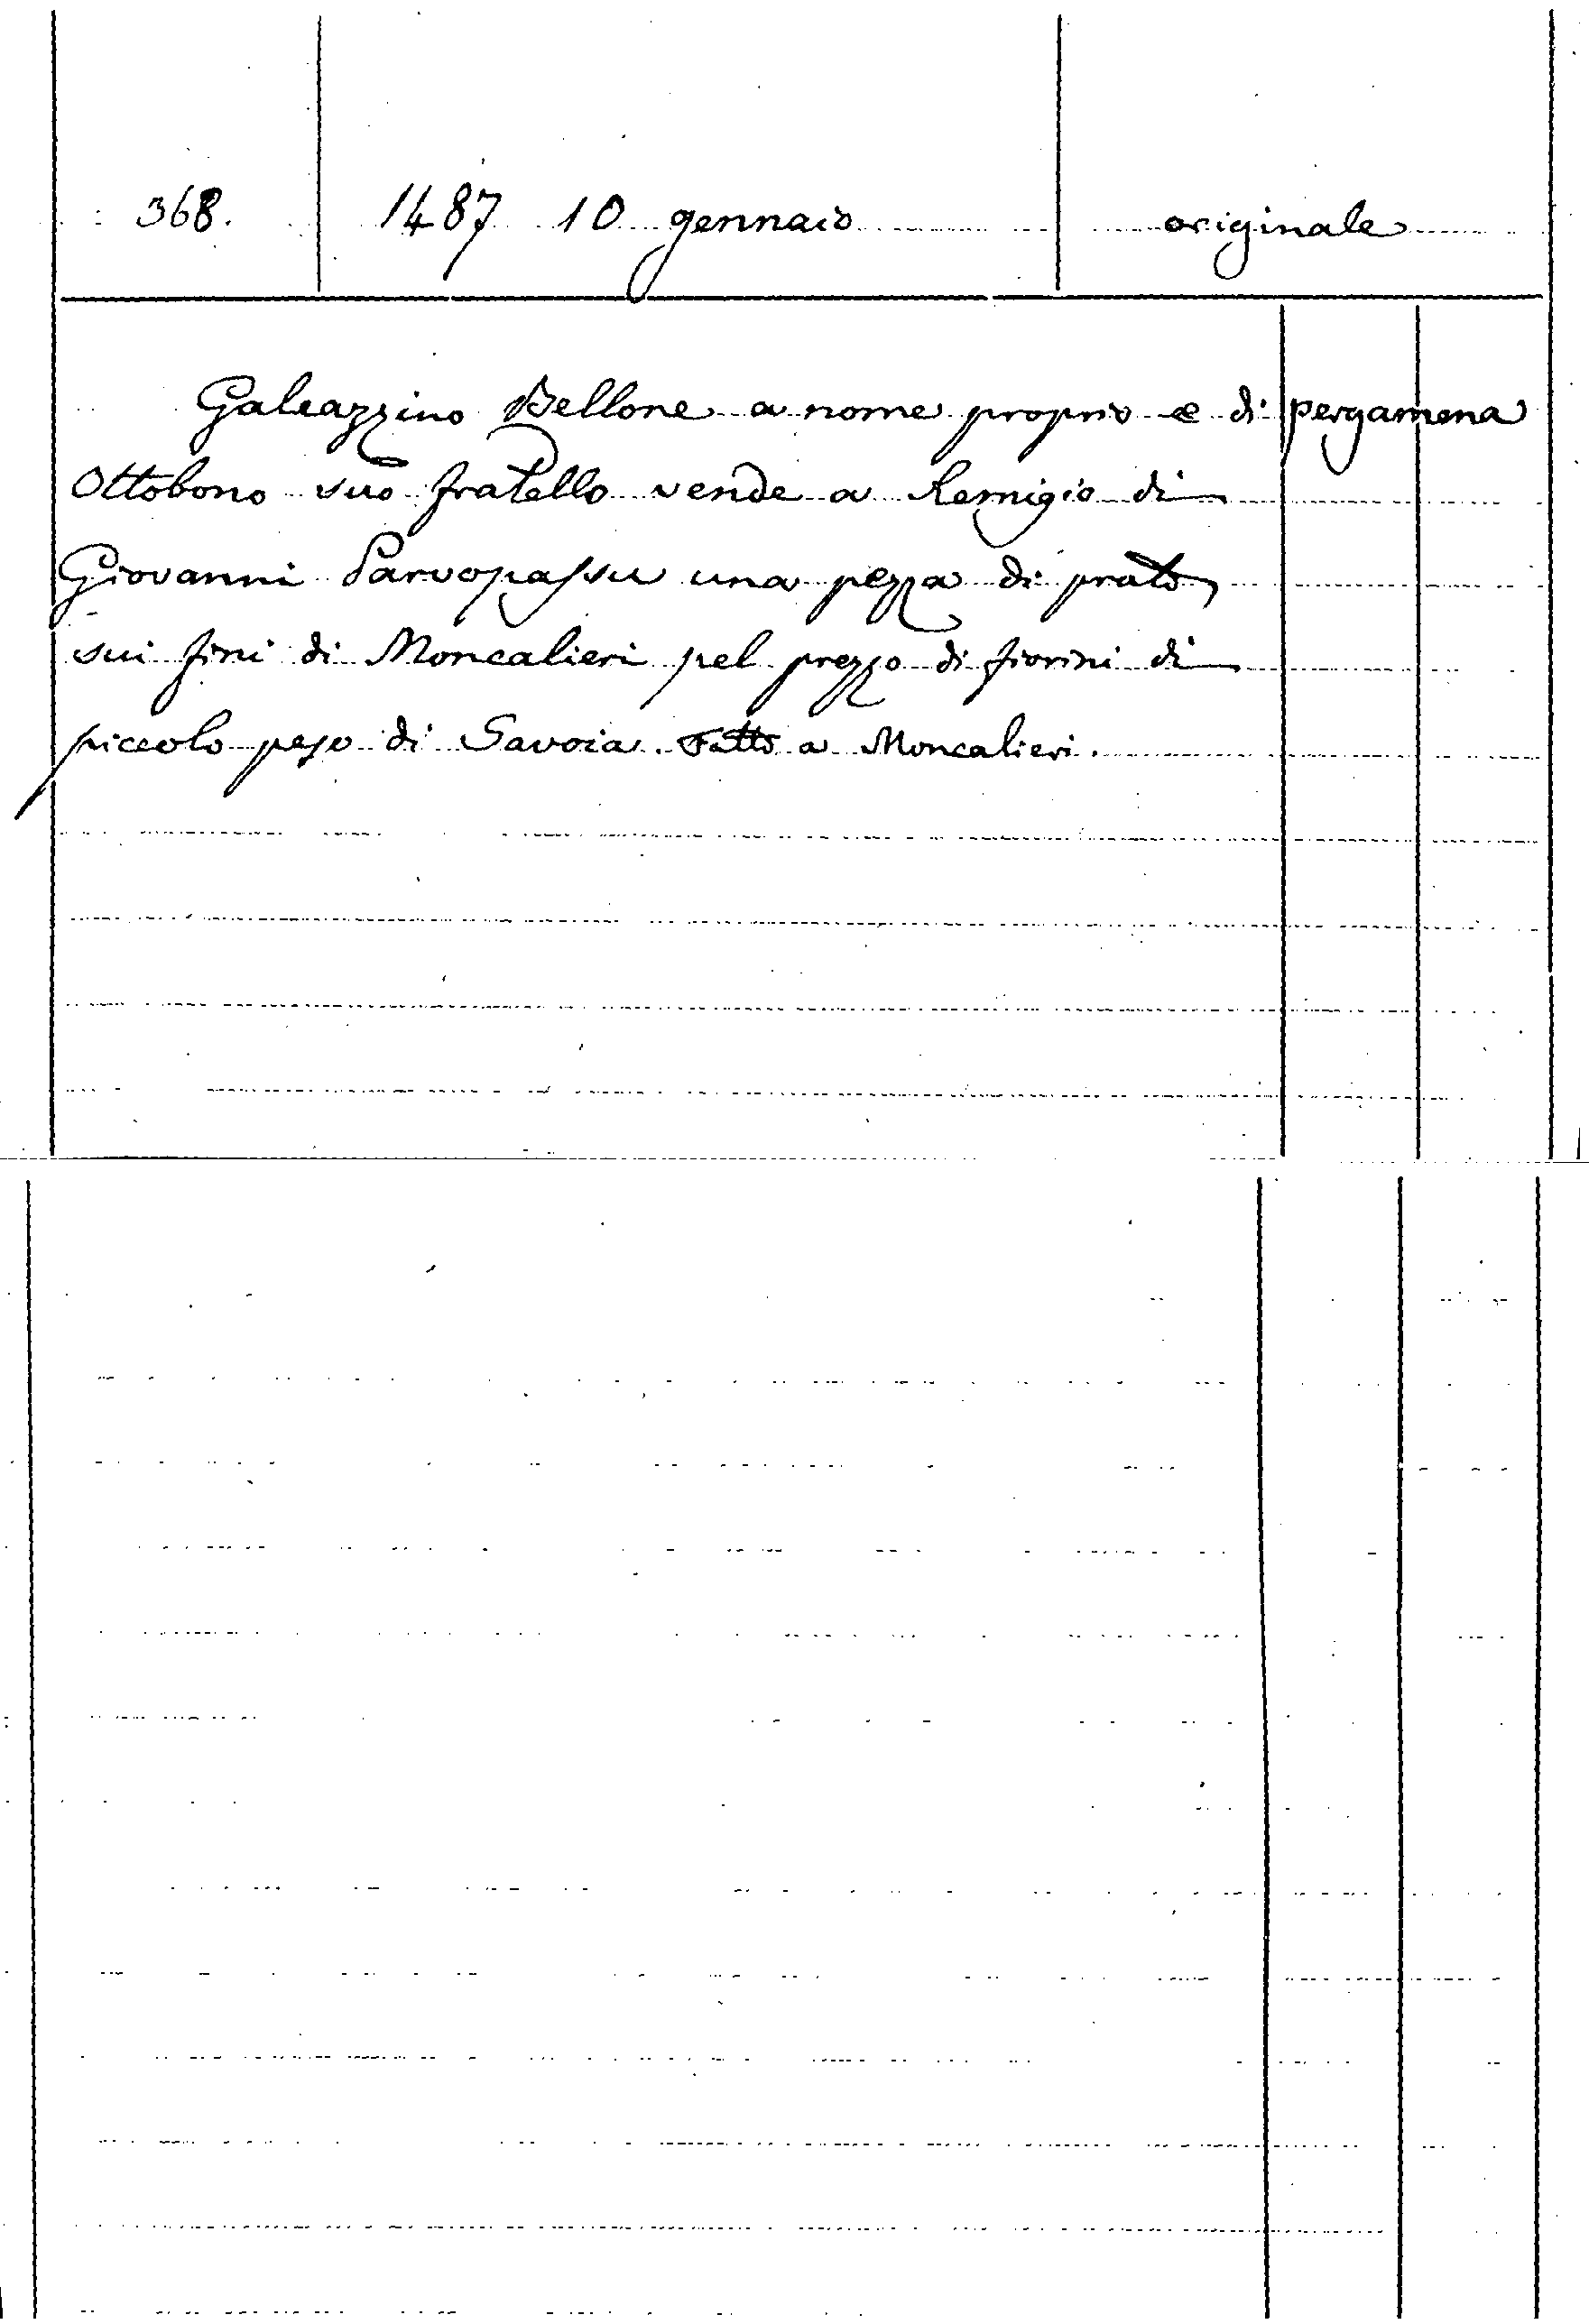 368. 1487 10 gennaio originale
Galeazzino Bellone a nome proprio e di pergamena
Ottobono suo fratello vende a Remigio di
Giovanni Parvopassu una pezza di prato
sui fini di Moncalieri pel prezzo di fiorini di
piccolo peso di Savoia. Fatto a Moncalieri.